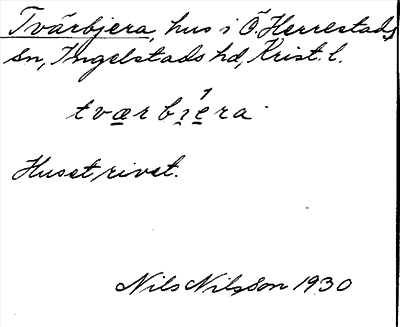 Tvärbjera, hus i Ö. Herrestads
sn, Ingelstads hd, Krist. l.
tværbi̯éra
Huset rivet.
Nils Nilsson 1930